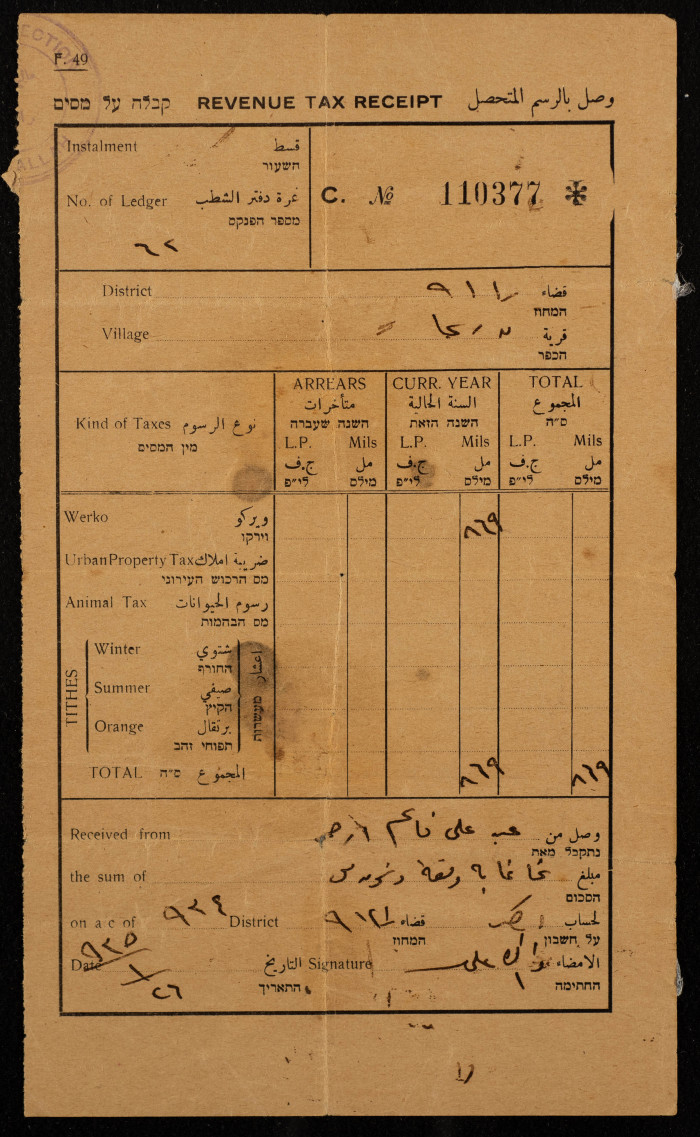 F. 49
קבלה על מסים REVENUE TAX RECEIPT وصل بالرسم المتحصل
Instalment قسط
השעור
No. of Ledger نمرة دفتر الشطب
מספר הפנקס
٦٢
C. № 110377 ✻
District قضاء
המחוז
Village قرية
הכפר
Kind of Taxes نوع الرسوم
מין המסים
ARREARS CURR. YEAR TOTAL
متأخرات السنة الحالية المجموع
השנה שעברה השנה הזאת ס"ה
L.P. Mils L.P. Mils L.P. Mils
ج.ف مل ج.ف مل ج.ف مل
לי"פ מילס לי"פ מילס לי"פ מילס
Werko ويركو ٨٦٩
וירקו
Urban Property Tax ضريبة املاك
מס הרכוש העירוני
Animal Tax رسوم الحيوانات
מס הבהמות
TITHES
Winter شتوي
החורף
Summer صيفي
הקיץ
Orange برتقال
תפוחי זהב
اعشار
מעשרות
TOTAL ס"ה المجموع ٨٦٩ ٨٦٩
Received from وصل من
נתקבל מאת
the sum of مبلغ
הסכום
on a c of ٩٣٤ District قضاء لحساب
המחוז על חשבון
Date ٩٣٥/١/٢٦ التاريخ Signature الامضاء
התאריך החתימה